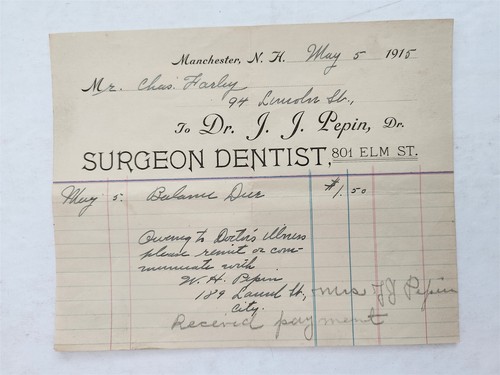 Manchester, N. H. May 5 1915
Mr. Chas. Farley
94 Lincoln St.,
To Dr. J. J. Pepin, Dr.
SURGEON DENTIST, 801 ELM ST.
May 5. Balance Due $1.50
Oweing to Doctor's illness
please remit or com-
municate with
W. H. Pepin
189 Laurel St,
City.
Mrs J J Pepin
Received payment